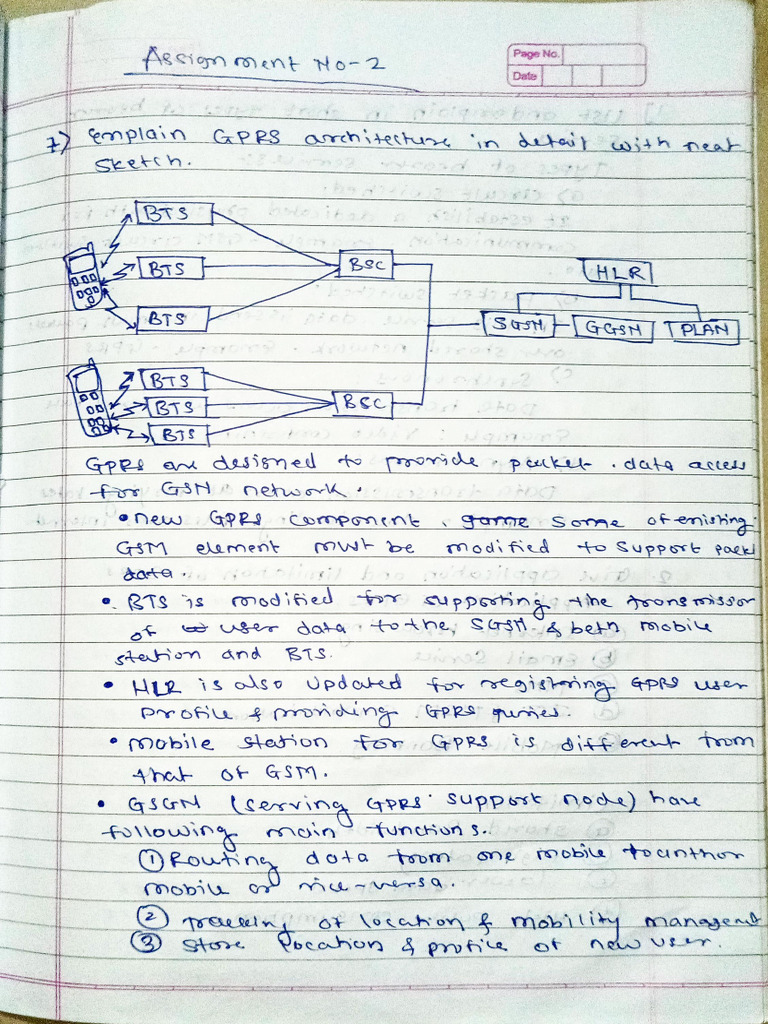 Assignment No-2
Page No.
Date
7) Explain GPRS architecture in detail with neat
sketch.
BTS
BTS
BTS
BSC
HLR
SGSN
GGSN
PLAN
BTS
BTS
BTS
BSC
GPRS are designed to provide packet . data access
for GSN network.
• new GPRS component , some of existing
GSM element must be modified to support pack
data.
• BTS is modified for supporting the transmissor
of user data to the SGSN & betn mobile
station and BTS.
• HLR is also updated for registring GPRS user
profile & providing GPRS queries.
• mobile station for GPRS is different from
that of GSM.
• GSGN (serving GPRS support node) have
following main functions.
① Routing data from one mobile to anthor
mobile or vice-versa.
② tracking of location & mobility managemet
③ store location & profile of new user.